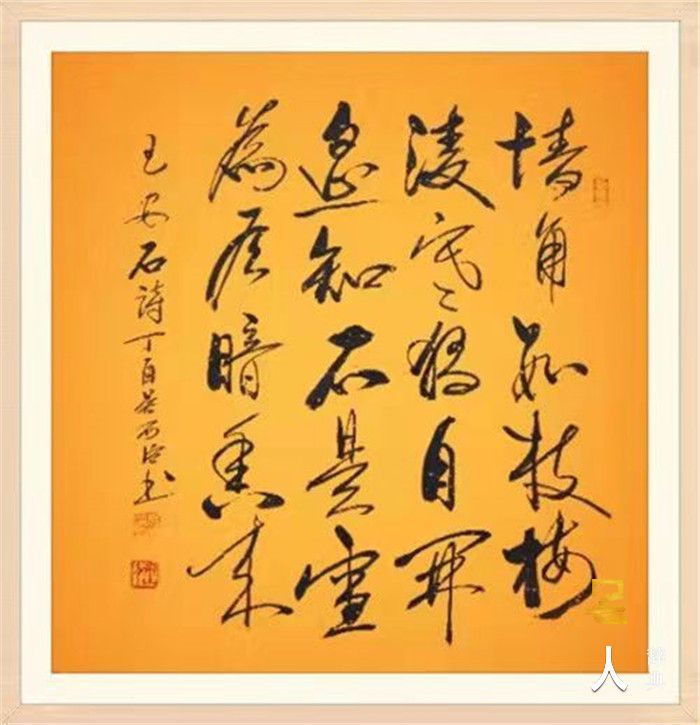 墙角数枝梅
凌寒独自開
遥知不是雪
為有暗香来
王安石詩丁酉吴书
人